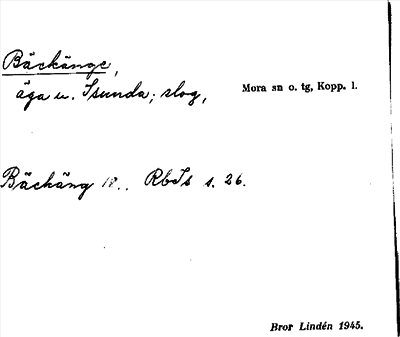 Bäckänge,
äga u. Isunda; slog,
Mora sn o. tg, Kopp. l.
Bäckäng 18.. RbIs s. 26.
Bror Lindén 1945.